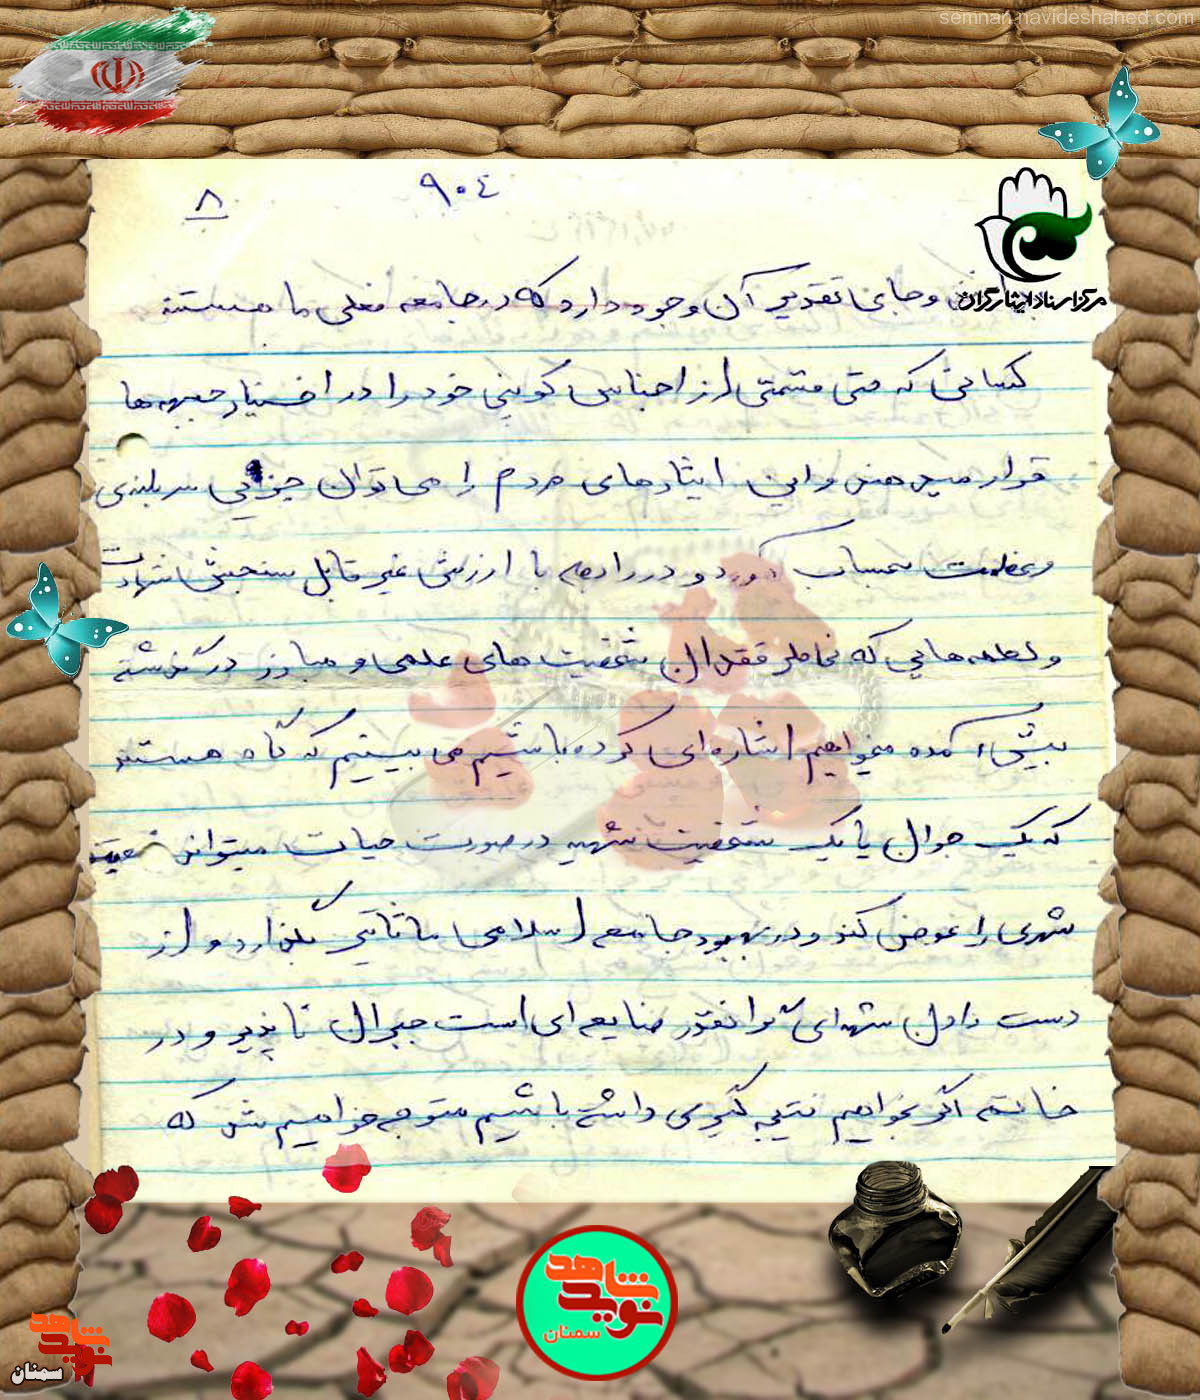 semnan.navideshahed.com
۹۰٤
۸
مرکز اسناد ایثارگران
وجای تقدیر آن وجود دارد که در جامعه فعلی ما هستند
کسانی که حتی قسمتی از اجناس کوپنی خود را در اختیار جبهه ها
قرار میدهند و این ایثارهای مردم را می توان چیزهایی سربلندی
وعظمت بحساب آورد و در رابطه با ارزش غیر قابل سنجش شهادت
و لطمه هایی که بخاطر فقدان شخصیت های علمی و مبارز در گذشته
پیش آمده میخواهیم اشاره ای کرده باشیم می بینیم که گاه هستند
که یک جوان یا یک شخصیت شهید در صورت حیات میتواند
شهری را عوض کند و در بهبود جامعه اسلامی ما تاثیر بگذارد و از
دست دادن شهدای گرانقدر ضایعه ای است جبران ناپذیر و در
خاتمه اگر بخواهیم نتیجه گیری داشته باشیم متوجه خواهیم شد که
نوید شاهد
سمنان
نوید شاهد
سمنان